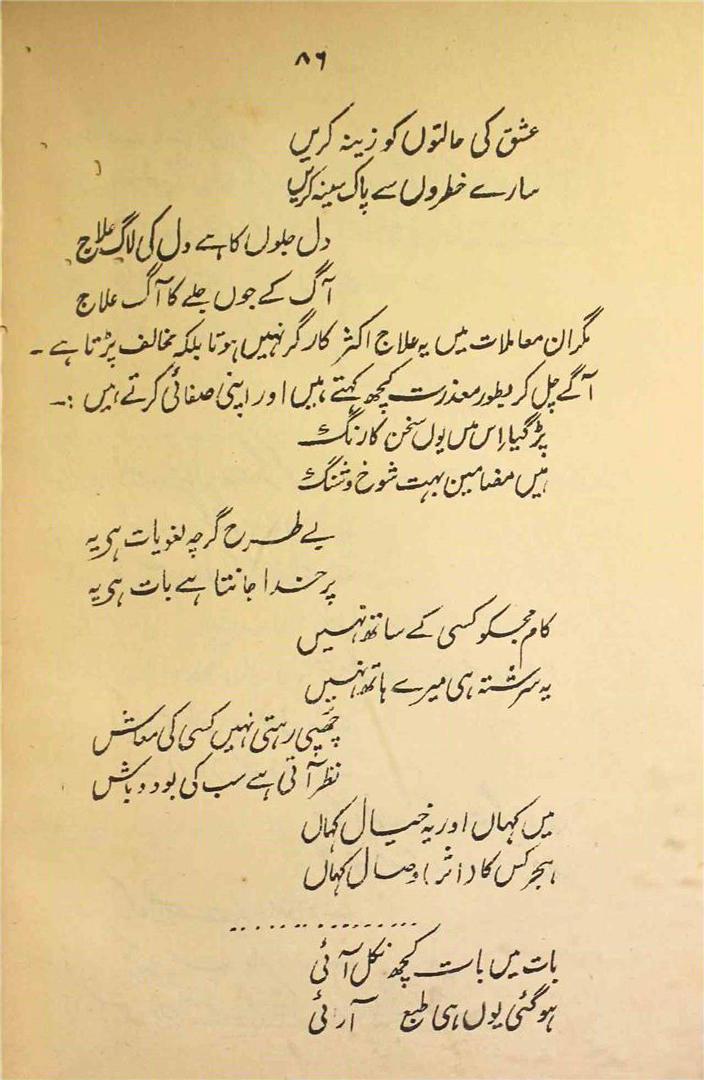 ۸۶
عشق کی حالتوں کو زینہ کریں
سارے خطروں سے پاک سینہ کریں
دل جلوں کا ہے دل کی لاگ علاج
آگ کے جوں جلے کا آگ علاج
مگر ان معاملات میں یہ علاج اکثر کارگر نہیں ہوتا بلکہ مخالف پڑتا ہے ۔
آگے چل کر بطور معذرت کچھ کہتے ہیں اور اپنی صفائی کرتے ہیں :۔
پڑ گیا اِس میں یوں سخن کا رنگ
ہیں مضامین بہت شوخ و شنگ
بے طرح گرچہ لغویات ہی یہ
پر خدا جانتا ہے بات ہی یہ
کام مجکو کسی کے ساتھ نہیں
یہ سر شتہ ہی میرے ہاتھ نہیں
چھُپی رہتی نہیں کسی کی معاش
نظر آتی ہے سب کی بود و باش
میں کہاں اور یہ خیال کہاں
ہجر کس کا (اثر) وصال کہاں
. . . . . . . . . . . . . . . .
بات میں بات کچھ نکل آئی
ہو گئی یوں ہی طبع آرائی